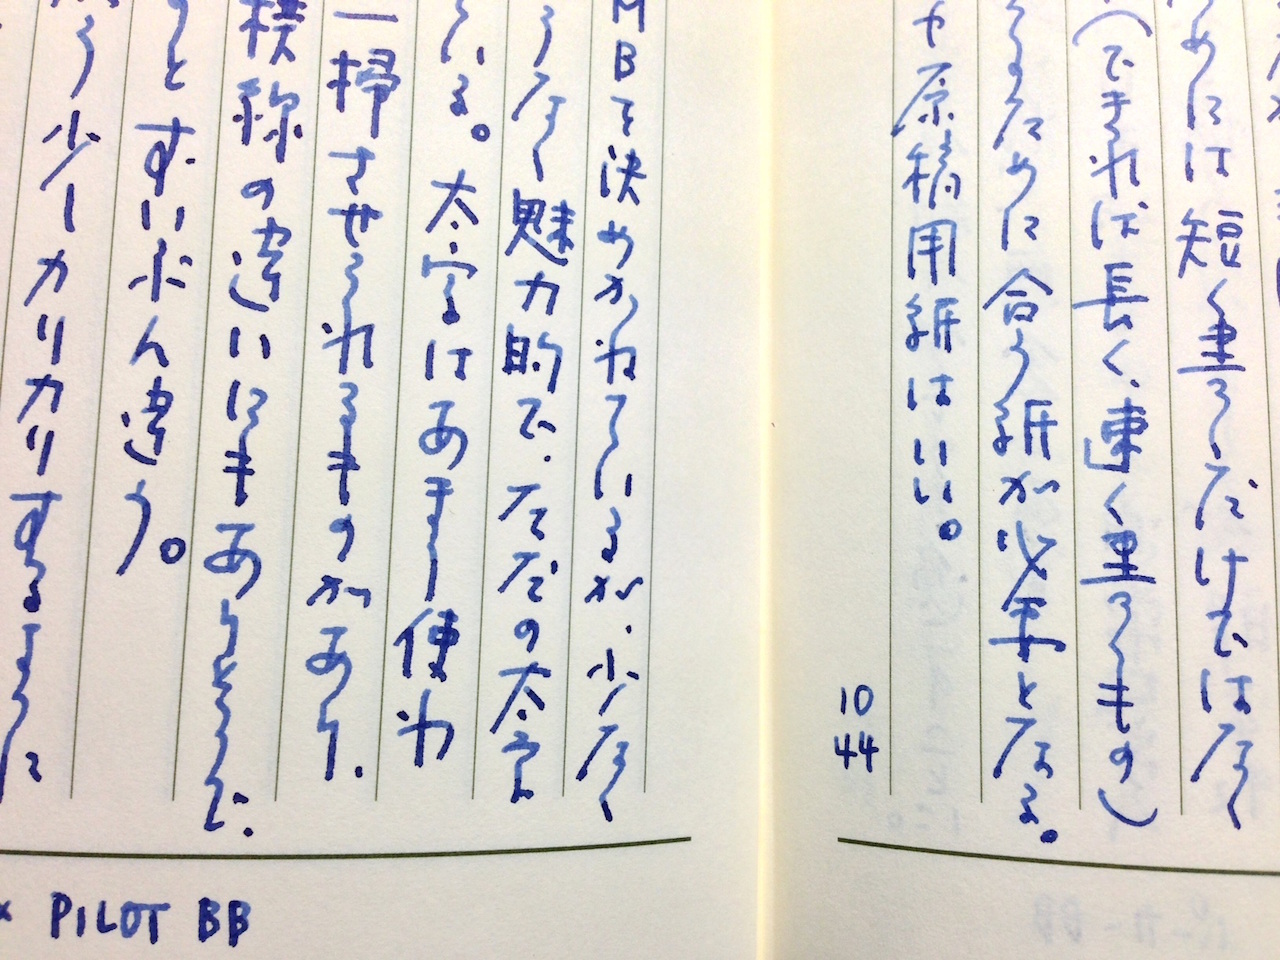 めには短く書くだけではなく
(できれば長く、速く書くもの)
るために合う紙が必要となる。
や原稿用紙はいい。
10
44
MBを決めかねているが、少なく
なく魅力的で、ただの太字
ている。太字はあまり使わ
一掃させられるものがあり、
の違いにもありそうで、
とずいぶん違う。
う少しカリカリするように
× PILOT BB